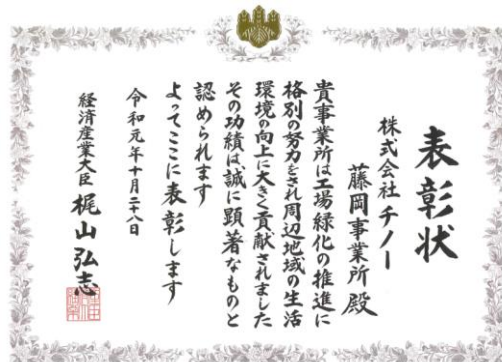 表彰状
株式会社チノー
藤岡事業所殿
貴事業所は工場緑化の推進に
格別の努力をされ周辺地域の生活
環境の向上に大きく貢献されました
その功績は、誠に顕著なものと
認められます
よってここに表彰します
令和元年十月二十八日
経済産業大臣 梶山弘志